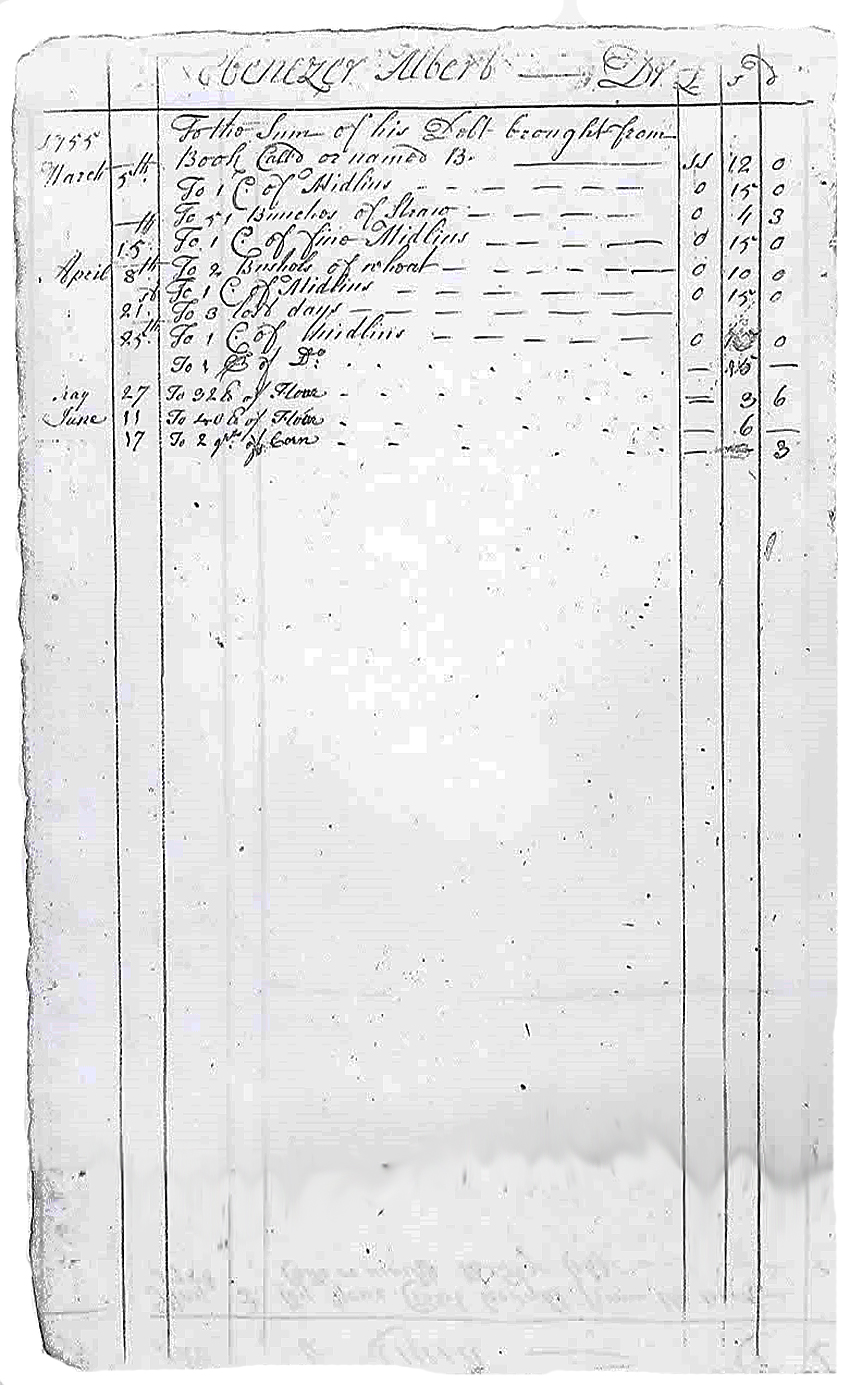 Ebenezer Albert — Dr. £ s d
1755 To the Sum of his Debt brought from
March 5th. Book Call'd or named B. — 55 12 0
To 1 C. of Midlins — 0 15 0
To 51 Bunches of Straw — 0 4 3
15th To 1 C. of fine Midlins — 0 15 0
April 8th To 2 Bushels of wheat — 0 10 0
To 1 C of Midlins — 0 15 0
21st To 3 lost days —
25th To 1 C. of Midlins — 0 0
To 1 C of Do. — 15 —
May 27 To 32 lb of Flour — 3 6
June 11 To 40 lb of Flour — 6 —
17 To 2 qts. of Corn — 3